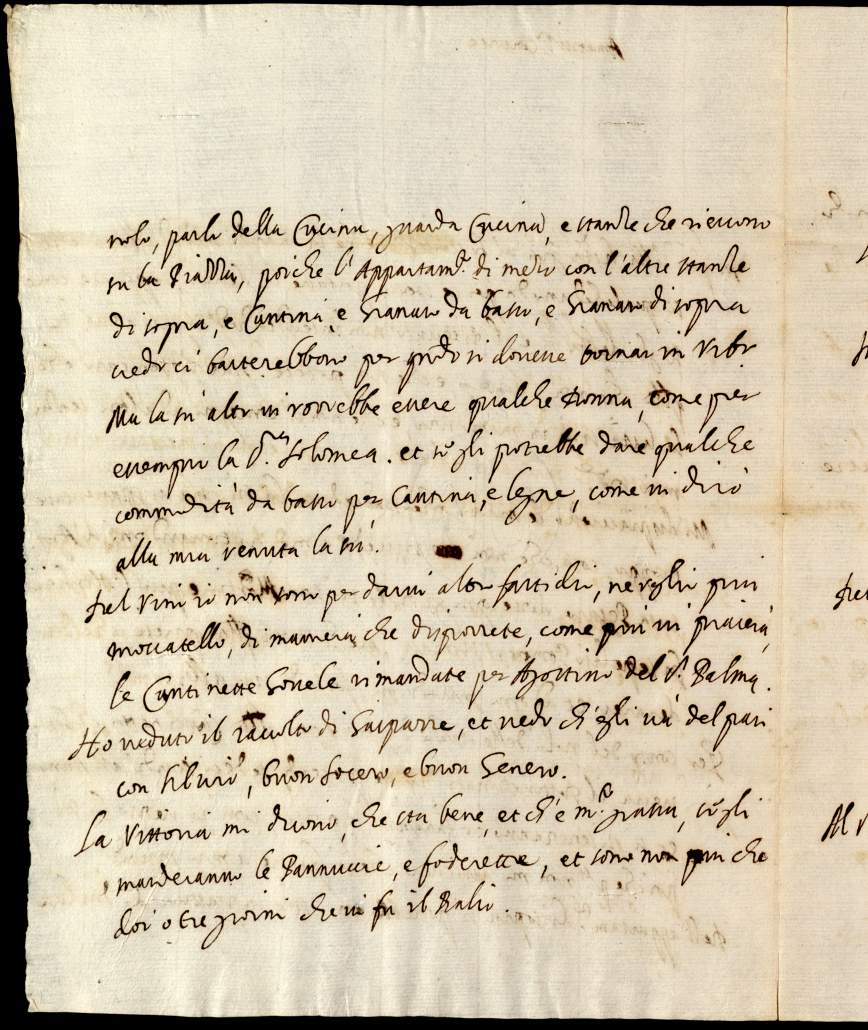 nolo, parlo della Cucina, guarda Cucina, e stanze che riescono
su la Piazza, poiche l'Appartam.º di mezo con l'altre stanze
di sopra, e Cantina, e Granaro da basso, e Granaro di sopra
credo ci bastarebbono per q.ndo si dovesse tornar in Urbe
Ma la sù altr vi vorrebbe essere qualche Donna, come per
essempio la D.ª Solomea. et se gli potrebbe dare qualche
commodità da basso per Cantina, e legne, come vi dirò
alla mia venuta la sù.
Del Vino io non sono per darvi altro fastidio, ne voglio più
moscatello, di maniera che disporrete, come più vi piacerà,
le Cantinette sonole rimandate per Agostino del S.r Palma.
Ho veduto il racolto di Gasparre, et vedo ch'egli và del pari
con Silvio, buon Socero, e buon Genero.
La Vittoria mi dicono, che sta bene, et ch'è m.to grassa, se gli
manderanno le Pannuccie, e foderette, et sono non più che
doi o tre giorni che vi fu il Balio.